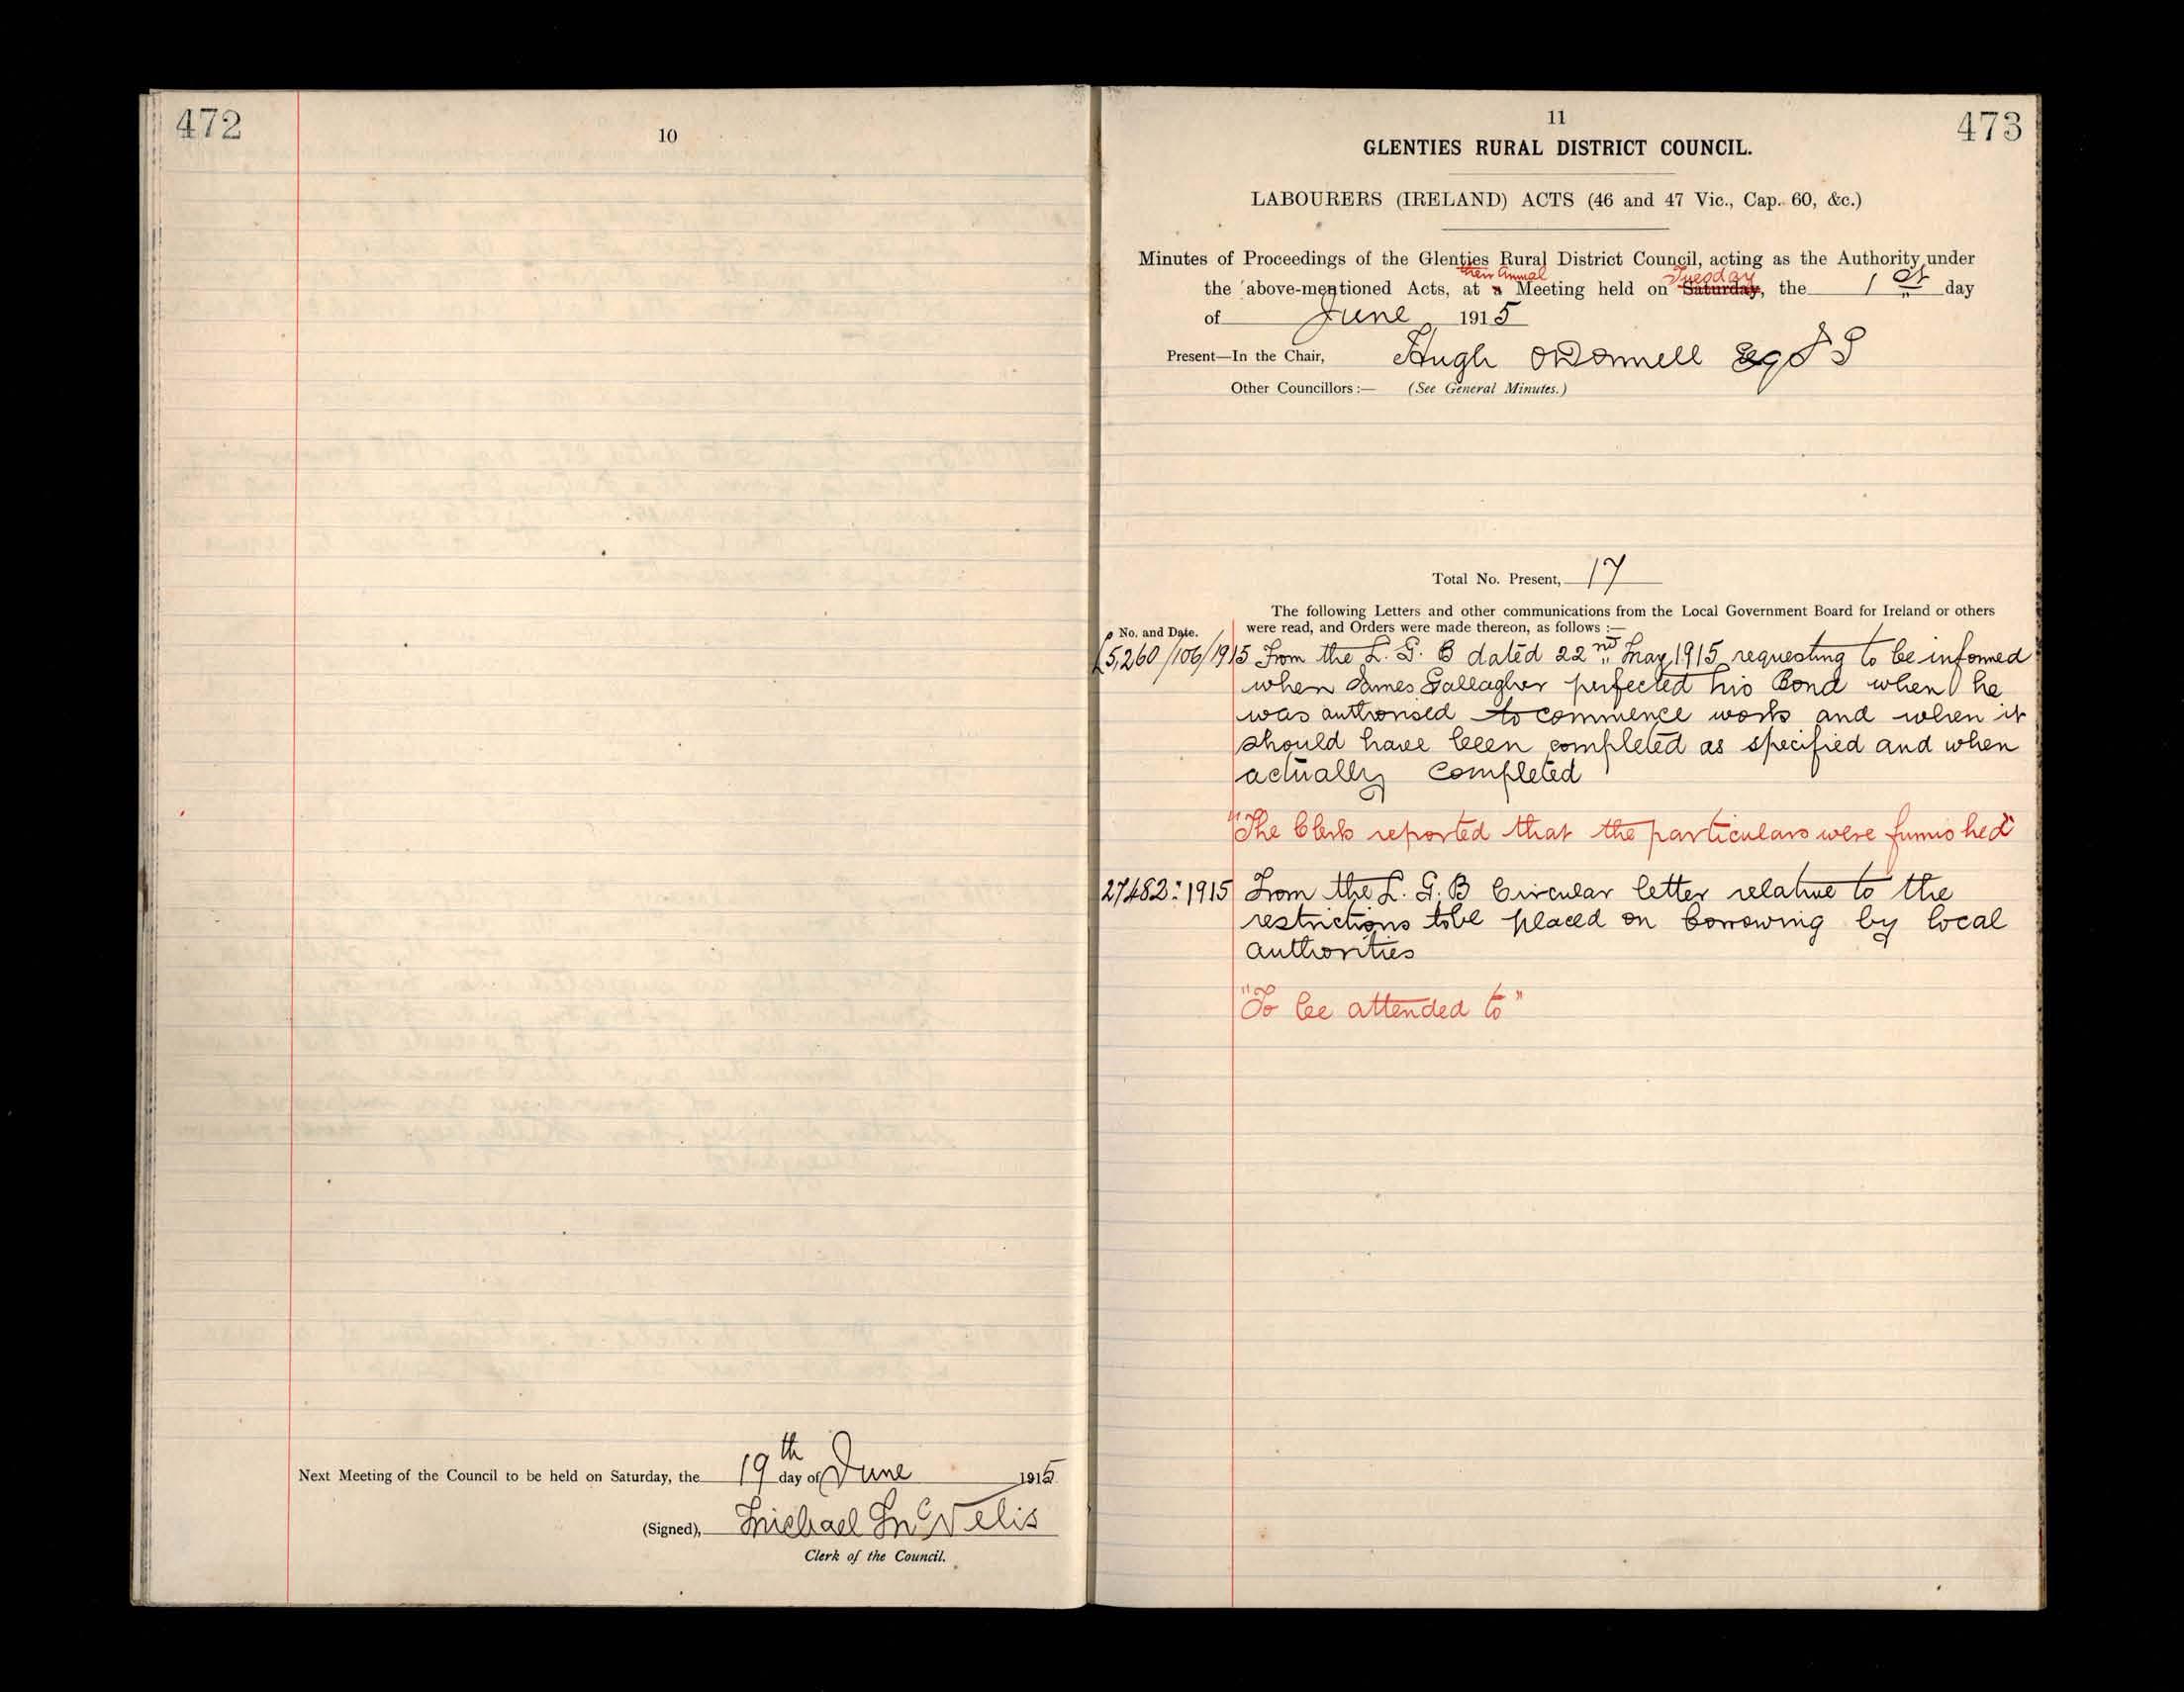 472
10
Next Meeting of the Council to be held on Saturday, the 19th day of June 1915
(Signed), Michael McNelis
Clerk of the Council.
473
11
GLENTIES RURAL DISTRICT COUNCIL.
LABOURERS (IRELAND) ACTS (46 and 47 Vic., Cap. 60, &c.)
Minutes of Proceedings of the Glenties Rural District Council, acting as the Authority under
their Annual Tuesday
the above-mentioned Acts, at a Meeting held on Saturday, the 1st day
of June 1915
Present—In the Chair, Hugh O'Donnell Esq
Other Councillors:— (See General Minutes.)
Total No. Present, 17
The following Letters and other communications from the Local Government Board for Ireland or others
No. and Date. were read, and Orders were made thereon, as follows :—
5,260/106/1915 From the L. G. B dated 22nd May 1915 requesting to be informed
when James Gallagher perfected his Bond when he
was authorised to commence work and when it
should have been completed as specified and when
actually completed
"The Clerk reported that the particulars were furnished"
27482:1915 From the L. G. B Circular letter relative to the
restrictions to be placed on borrowing by local
authorities
"To be attended to"